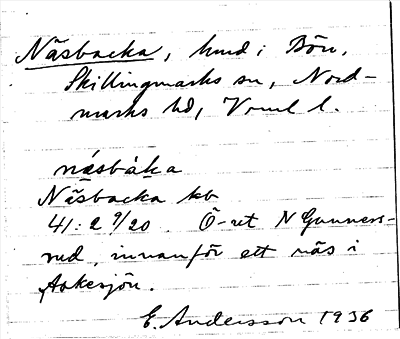 Näsbacka, hmd i Bön,
Skillingmarks sn, Nord-
marks hd, Vrml l.
näsbàka
Näsbacka kb
41: 2 9/20. Ö-ret N Gunners-
rud, innanför ett näs i
Askesjön.
E. Andersson 1936